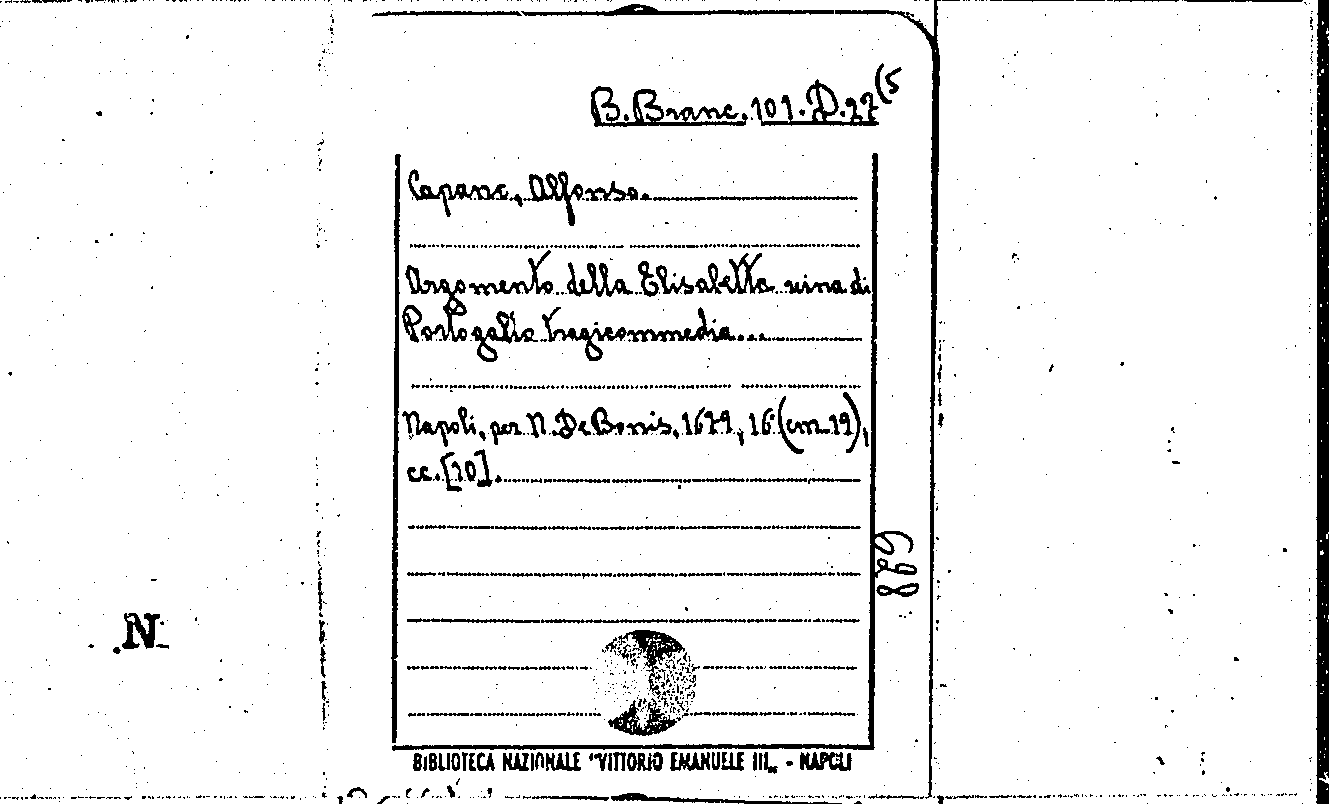 B. Branc. 101. D. 27 (5
Capano, Alfonso.
Argomento della Elisabetta reina di
Portogallo tragicommedia...
Napoli, per N. De Bonis, 1679, 16° (cm. 19),
cc. [10].
698
N
BIBLIOTECA NAZIONALE "VITTORIO EMANUELE III„ - NAPOLI